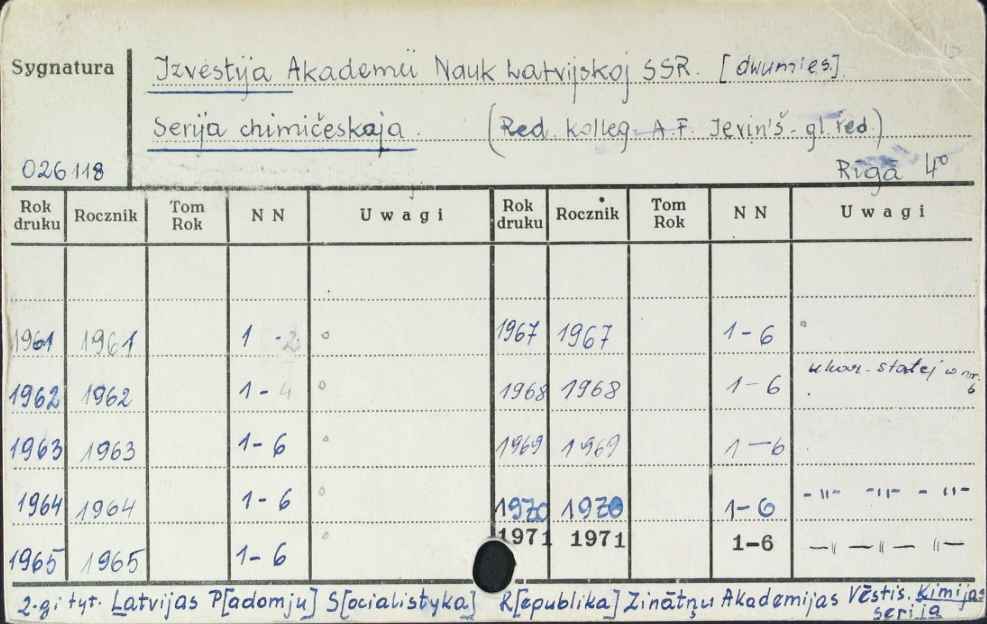 Sygnatura
Izvestija Akademii Nauk Latvijskoj SSR. [dwumies].
Serija chimičeskaja. (Red. Kolleg. A.F. Ieviņ'š - gl. red.)
026118
Rīga 4°
Rok druku Rocznik Tom Rok N N Uwagi Rok druku Rocznik Tom Rok N N Uwagi
1961 1961 1 - 2 1967 1967 1-6
1962 1962 1-4 1968 1968 1-6 ukaz. statej w nr. 6
1963 1963 1-6 1969 1969 1-6
1964 1964 1-6 1970 1970 1-6 - 〃 - - 〃 - - 〃 -
1965 1965 1-6 1971 1971 1-6 - 〃 - 〃 - 〃 -
2-gi tyt. Latvijas P[adomju] S[ocialistyka] R[epublika] Zinātņu Akademijas Vēstis. Kīmijas
serija